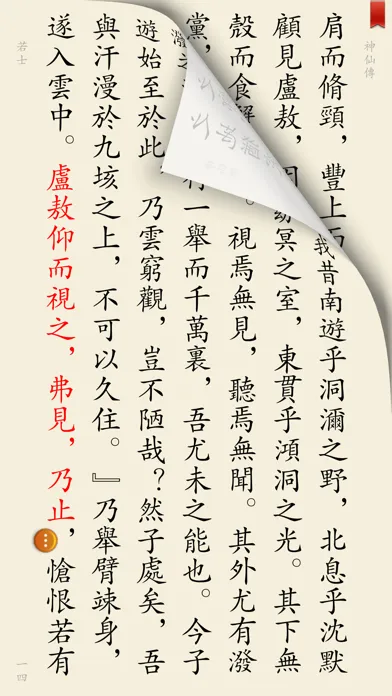 神仙傳
肩而脩頸，豐上
我昔南遊乎洞瀰之野，北息乎沈默
顧見盧敖，
冥之室，東貫乎澒洞之光。其下無
殼而食
。視焉無見，聽焉無聞。其外尤有潑
黨，
一舉而千萬裏，吾尤未之能也。今子
遊始至於此，乃雲窮觀，豈不陋哉？然子處矣，吾
與汗漫於九垓之上，不可以久住。』乃舉臂竦身，
遂入雲中。盧敖仰而視之，弗見，乃止，愴恨若有
若士
一四